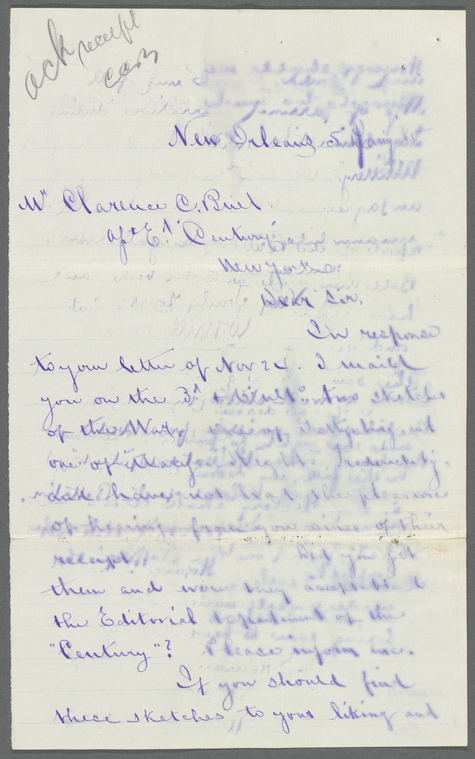 ack receipt
CCB
New Orleans 5
Mr Clarence C. Buel.
"Century"
New York
Dear Sir,
In response
to your letter of Nov 24. I mailed
you on the two sketches
of the War, one of
one of
have not had the pleasure
of hearing from you since of their
receipt. Did you get
them and were they acceptable to
the Editorial department of the
"Century"? Please inform me.
If you should find
these sketches to your liking and